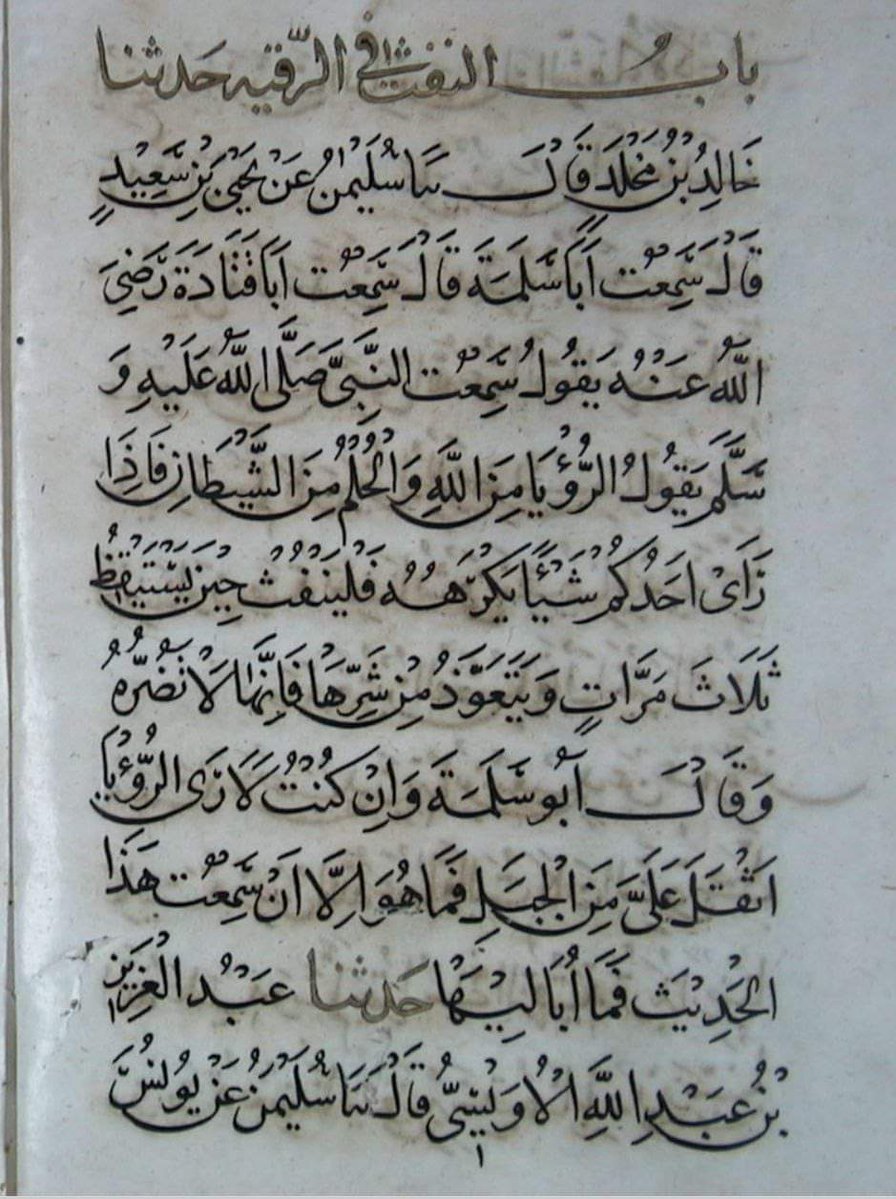 باب النفث في الرّقيه حدثنا
خَالِدُ بْنُ مَخْلَدٍ قَالَ ثنا سُلَيْمٰنُ عَنْ يَحْيَى بْنِ سَعِيْدٍ
قَالَ سَمِعْتُ أَبَا سَلَمَةَ قَالَ سَمِعْتُ اَبَا قَتَادَةَ رَضِيَ
اللّٰهُ عَنْهُ يَقُولُ سَمِعْتُ النَّبِيَّ صَلَّى اللّٰهُ عَلَيْهِ وَ
سَلَّمَ يَقُولُ الرُّؤْيَا مِنَ اللّٰهِ وَالْحُلْمُ مِنَ الشَّيْطَانِ فَاِذَا
رَاَىْ اَحَدُكُمْ شَيْئًا يَكْرَهُهُ فَلْيَنْفُثْ حِيْنَ يَسْتَيْقِظُ
ثَلَاثَ مَرَّاتٍ وَيَتَعَوَّذُ مِنْ شَرِّهَا فَاِنَّهَا لَا تَضُرُّهُ
وَقَالَ اَبُو سَلَمَةَ وَاِنْ كُنْتُ لَاَرَى الرُّؤْيَا
اَثْقَلَ عَلَيَّ مِنَ الْجَبَلِ فَمَا هُوَ اِلَّا اَنْ سَمِعْتُ هَذَا
الْحَدِيْثَ فَمَا اُبَالِيْهَا حَدثنا عَبْدُ الْعَزِيْزِ
بْنُ عَبْدِ اللّٰهِ الْاُوَيْسِيُّ قَالَ ثَنَا سُلَيْمٰنُ عَنْ يُونُسَ
١